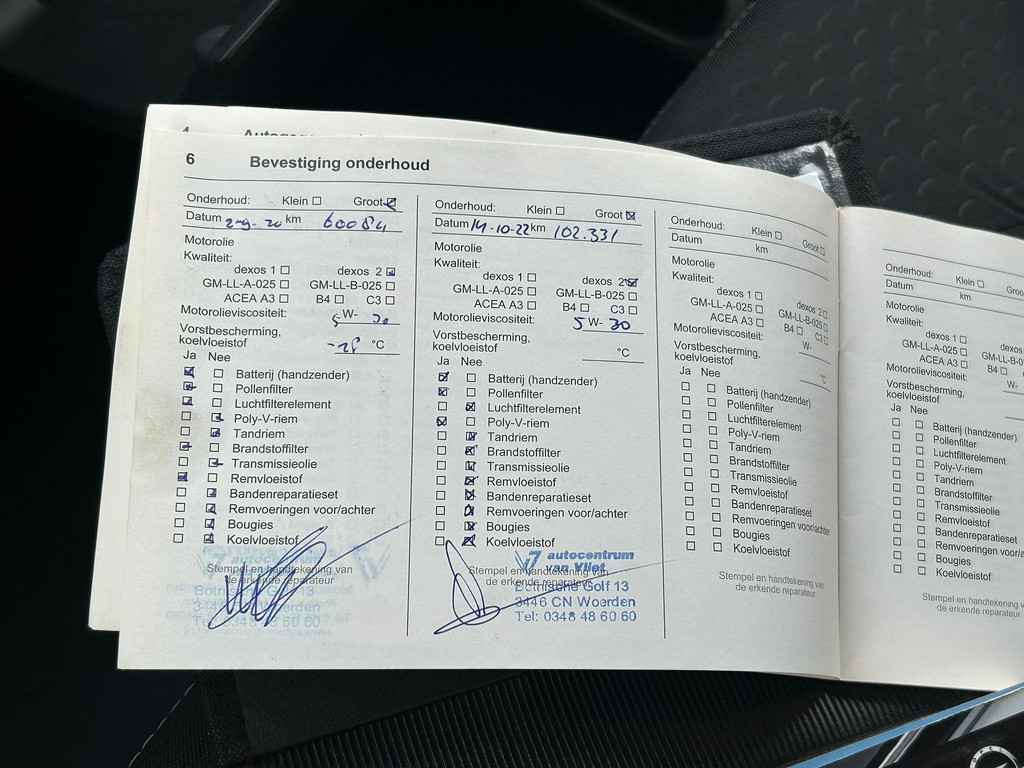 6 Bevestiging onderhoud
Onderhoud: Klein ☐ Groot ☑
Datum 2-9-20 km 60084
Motorolie
Kwaliteit:
dexos 1 ☐ dexos 2 ☑
GM-LL-A-025 ☐ GM-LL-B-025 ☐
ACEA A3 ☐ B4 ☐ C3 ☐
Motorolieviscositeit: 5 W- 30
Vorstbescherming,
koelvloeistof -28 °C
Ja Nee
☑ ☐ Batterij (handzender)
☑ ☐ Pollenfilter
☑ ☐ Luchtfilterelement
☐ ☑ Poly-V-riem
☐ ☑ Tandriem
☑ ☐ Brandstoffilter
☐ ☑ Transmissieolie
☑ ☐ Remvloeistof
☐ ☑ Bandenreparatieset
☐ ☑ Remvoeringen voor/achter
☐ ☑ Bougies
☐ ☑ Koelvloeistof
Stempel en handtekening van
de erkende reparateur
Botnische Golf 13
3446 CN Woerden
Tel: 0348 48 60 60
Onderhoud: Klein ☐ Groot ☒
Datum 14-10-22 km 102.331
Motorolie
Kwaliteit:
dexos 1 ☐ dexos 2 ☒
GM-LL-A-025 ☐ GM-LL-B-025 ☐
ACEA A3 ☐ B4 ☐ C3 ☐
Motorolieviscositeit: 5 W- 30
Vorstbescherming,
koelvloeistof °C
Ja Nee
☒ ☐ Batterij (handzender)
☒ ☐ Pollenfilter
☐ ☒ Luchtfilterelement
☒ ☐ Poly-V-riem
☐ ☒ Tandriem
☐ ☒ Brandstoffilter
☐ ☒ Transmissieolie
☐ ☒ Remvloeistof
☐ ☒ Bandenreparatieset
☐ ☒ Remvoeringen voor/achter
☐ ☒ Bougies
☐ ☒ Koelvloeistof
autocentrum
van Vliet
Stempel en handtekening van
de erkende reparateur
Botnische Golf 13
3446 CN Woerden
Tel: 0348 48 60 60
Onderhoud: Klein ☐ Groot ☐
Datum km
Motorolie
Kwaliteit:
dexos 1 ☐ dexos 2 ☐
GM-LL-A-025 ☐ GM-LL-B-025 ☐
ACEA A3 ☐ B4 ☐ C3 ☐
Motorolieviscositeit: W-
Vorstbescherming,
koelvloeistof °C
Ja Nee
☐ ☐ Batterij (handzender)
☐ ☐ Pollenfilter
☐ ☐ Luchtfilterelement
☐ ☐ Poly-V-riem
☐ ☐ Tandriem
☐ ☐ Brandstoffilter
☐ ☐ Transmissieolie
☐ ☐ Remvloeistof
☐ ☐ Bandenreparatieset
☐ ☐ Remvoeringen voor/achter
☐ ☐ Bougies
☐ ☐ Koelvloeistof
Stempel en handtekening van
de erkende reparateur
Onderhoud: Klein ☐
Datum km
Motorolie
Kwaliteit:
dexos 1 ☐
GM-LL-A-025 ☐
ACEA A3 ☐ B4 ☐
Motorolieviscositeit: W-
Vorstbescherming,
koelvloeistof
Ja Nee
☐ ☐ Batterij (handzender)
☐ ☐ Pollenfilter
☐ ☐ Luchtfilterelement
☐ ☐ Poly-V-riem
☐ ☐ Tandriem
☐ ☐ Brandstoffilter
☐ ☐ Transmissieolie
☐ ☐ Remvloeistof
☐ ☐ Bandenreparatieset
☐ ☐ Remvoeringen
☐ ☐ Bougies
☐ ☐ Koelvloeistof
Stempel en handtekening
de erkende reparateur